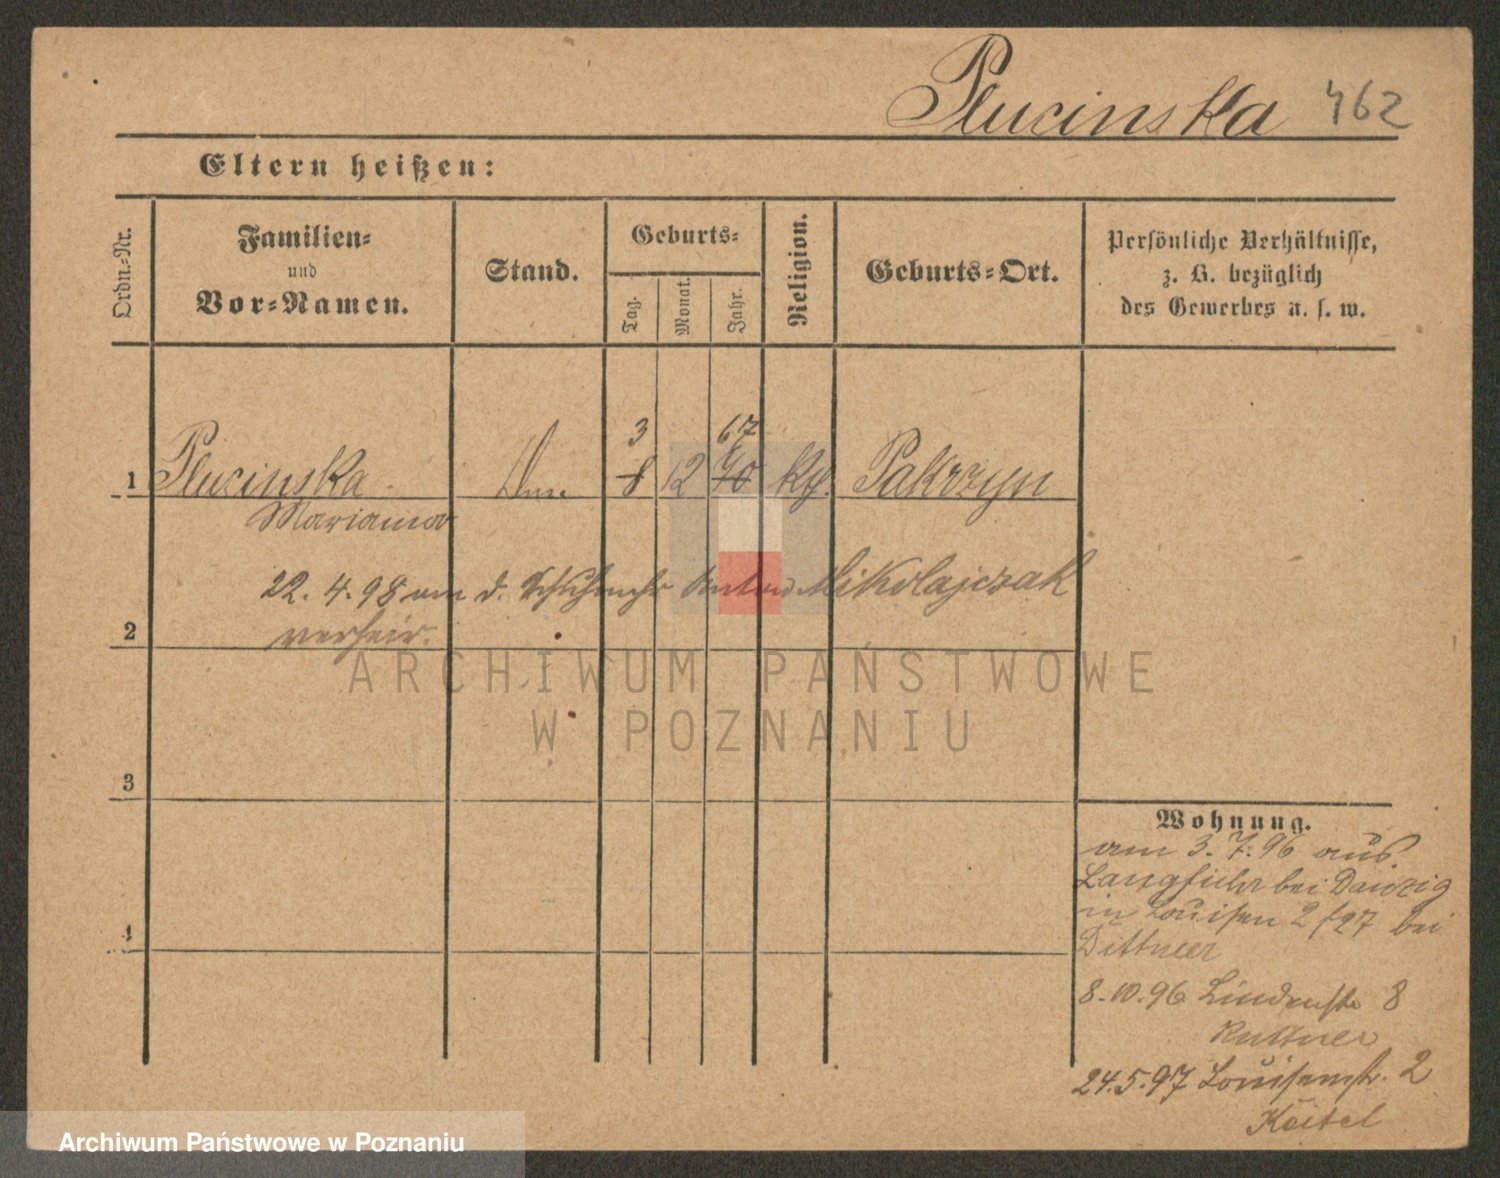 Plucinska 462
Eltern heißen:
Ordn.-Nr.
Familien-
und
Vor-Namen.
Stand.
Geburts-
Tag.
Monat.
Jahr.
Religion.
Geburts-Ort.
Persönliche Verhältnisse,
z. B. bezüglich
des Gewerbes u. s. w.
3 67
1 Plucinska 8 12 70 Pakrzyn
Marianna
22. 4. 98 an d. Anton Mikolajczak
2 verheir.
ARCHIWUM PAŃSTWOWE
W POZNANIU
3
4
Wohnung.
am 3. 7. 96 aus
Langfuhr bei Danzig
in Louisen 2 f 27 bei
Dittner
8. 10. 96 Lindenstr 8
24. 5. 97 Louisenstr. 2
Keitel
Archiwum Państwowe w Poznaniu